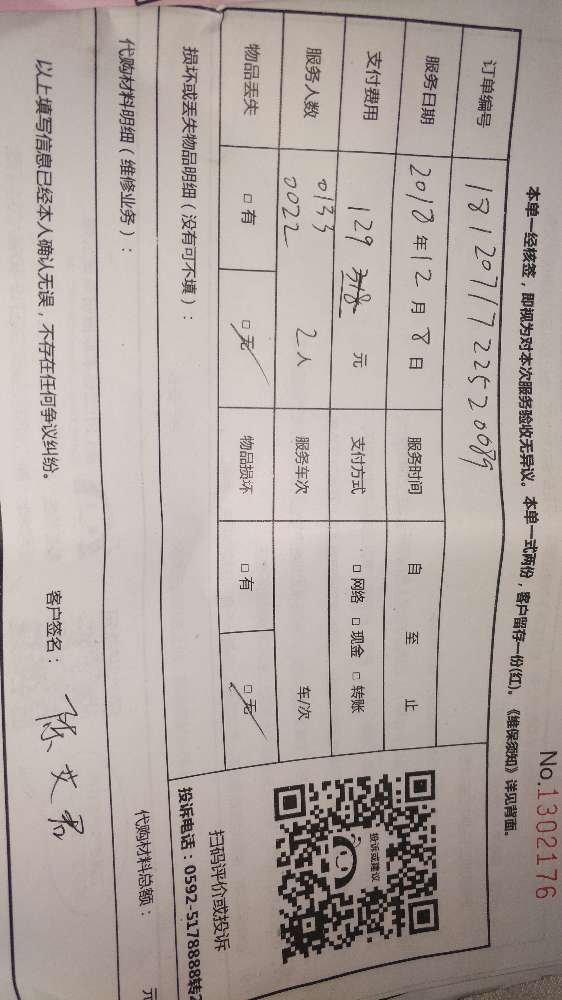 No.1302176
本单一经核签，即视为对本次服务验收无异议。本单一式两份，客户留存一份(红)。《维保须知》详见背面。
订单编号 18120717225220089
服务日期 2018年12月8日 服务时间 自 至 止
支付费用 129 318 元 支付方式 □网络 □现金 □转账
服务人数 0133 0022 2人 服务车次 车/次
物品丢失 □有 □无 物品损坏 □有 □无
损坏或丢失物品明细（没有可不填）：
投诉或建议
扫码评价或投诉
投诉电话：0592-5178888转2
代购材料明细（维修业务）：
代购材料总额： 元
以上填写信息已经本人确认无误，不存在任何争议纠纷。 客户签名：陈艾君